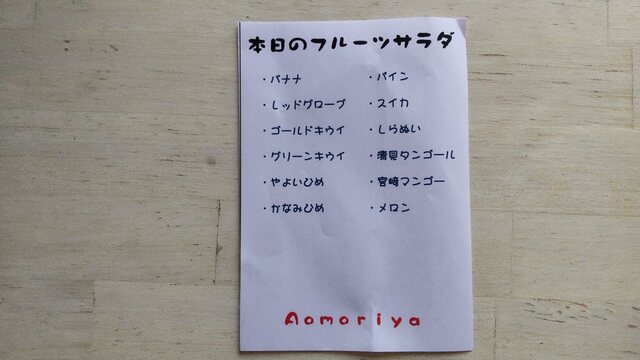 本日のフルーツサラダ
・バナナ
・レッドグローブ
・ゴールドキウイ
・グリーンキウイ
・やよいひめ
・かなみひめ
・パイン
・スイカ
・しらぬい
・清見タンゴール
・宮崎マンゴー
・メロン
Aomoriya